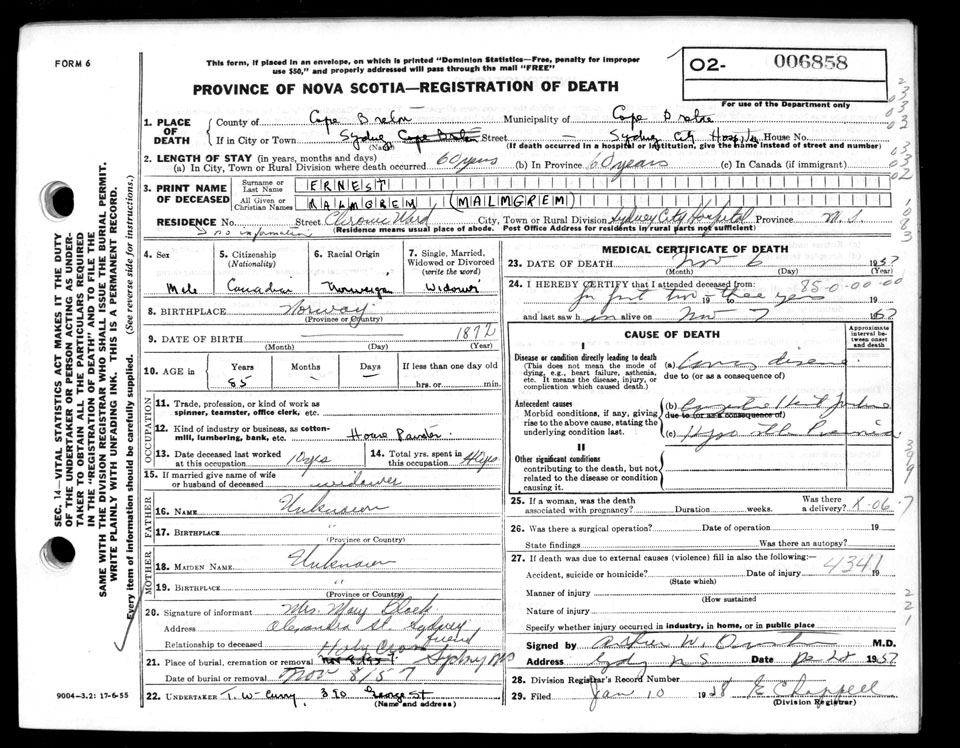 FORM 6
This form, if placed in an envelope, on which is printed "Dominion Statistics—Free, penalty for improper
use $50," and properly addressed will pass through the mail "FREE"
O2- 006858
For use of the Department only
PROVINCE OF NOVA SCOTIA—REGISTRATION OF DEATH
1. PLACE OF DEATH
County of Cape Breton Municipality of Cape Breton
If in City or Town Sydney Cape Breton Street — Sydney City Hospital House No.
(Name) (If death occurred in a hospital or institution, give the name instead of street and number)
2. LENGTH OF STAY (in years, months and days)
(a) In City, Town or Rural Division where death occurred 60 years (b) In Province 60 years (c) In Canada (if immigrant)
3. PRINT NAME OF DECEASED
Surname or Last Name ERNEST
All Given or Christian Names MALMGREM, (MALMGREM)
RESIDENCE No. Street Chronic Ward City, Town or Rural Division Sydney City Hospital Province N.S.
no information (Residence means usual place of abode. Post Office Address for residents in rural parts not sufficient)
4. Sex
Male
5. Citizenship (Nationality)
Canadian
6. Racial Origin
Norwegian
7. Single, Married, Widowed or Divorced (write the word)
Widower
8. BIRTHPLACE Norway
(Province or Country)
9. DATE OF BIRTH 1872
(Month) (Day) (Year)
10. AGE in Years Months Days If less than one day old
85 — — hrs. or min.
OCCUPATION
11. Trade, profession, or kind of work as
spinner, teamster, office clerk, etc.
12. Kind of industry or business, as cotton-
mill, lumbering, bank, etc. House Painter
13. Date deceased last worked
at this occupation 10 yrs
14. Total yrs. spent in
this occupation 40 yrs
15. If married give name of wife
or husband of deceased widower
FATHER
16. NAME Unknown
17. BIRTHPLACE "
(Province or Country)
MOTHER
18. MAIDEN NAME Unknown
19. BIRTHPLACE "
(Province or Country)
20. Signature of informant Mrs. Mary
Address Alexandra St. Sydney
Relationship to deceased friend
21. Place of burial, cremation or removal Holy Cross Sydney NS
Date of burial or removal Nov 8/57
22. UNDERTAKER T. W. Curry 380 George St
(Name and address)
9004-3.2: 17-6-55
MEDICAL CERTIFICATE OF DEATH
23. DATE OF DEATH Nov 6 1957
(Month) (Day) (Year)
24. I HEREBY CERTIFY that I attended deceased from: 85-0-00-00
for past two 19 to three years 19
and last saw him alive on Nov 7 1957
CAUSE OF DEATH
Approximate interval between onset and death
I
Disease or condition directly leading to death
(This does not mean the mode of
dying, e.g., heart failure, asthenia,
etc. It means the disease, injury, or
complication which caused death.)
(a)
due to (or as a consequence of)
Antecedent causes
Morbid conditions, if any, giving
rise to the above cause, stating the
underlying condition last.
(b) Congestive Heart Failure
due to (or as a consequence of)
(c)
II
Other significant conditions
contributing to the death, but not
related to the disease or condition
causing it.
25. If a woman, was the death
associated with pregnancy? Duration weeks. Was there a delivery? X-06-7
26. Was there a surgical operation? Date of operation 19
State findings Was there an autopsy?
27. If death was due to external causes (violence) fill in also the following: 4341
Accident, suicide or homicide? Date of injury 19
(State which)
Manner of injury
(How sustained
Nature of injury
Specify whether injury occurred in industry, in home, or in public place
Signed by Arthur W. M.D.
Address Sydney N S Date 1957
28. Division Registrar's Record Number
29. Filed Jan 10 1958 E Chappell
(Division Registrar)
SEC. 14—VITAL STATISTICS ACT MAKES IT THE DUTY
OF THE UNDERTAKER OR PERSON ACTING AS UNDER-
TAKER TO OBTAIN ALL THE PARTICULARS REQUIRED
IN THE "REGISTRATION OF DEATH" AND TO FILE THE
SAME WITH THE DIVISION REGISTRAR WHO SHALL ISSUE THE BURIAL PERMIT.
WRITE PLAINLY WITH UNFADING INK. THIS IS A PERMANENT RECORD.
Every item of information should be carefully supplied. (See reverse side for instructions.)